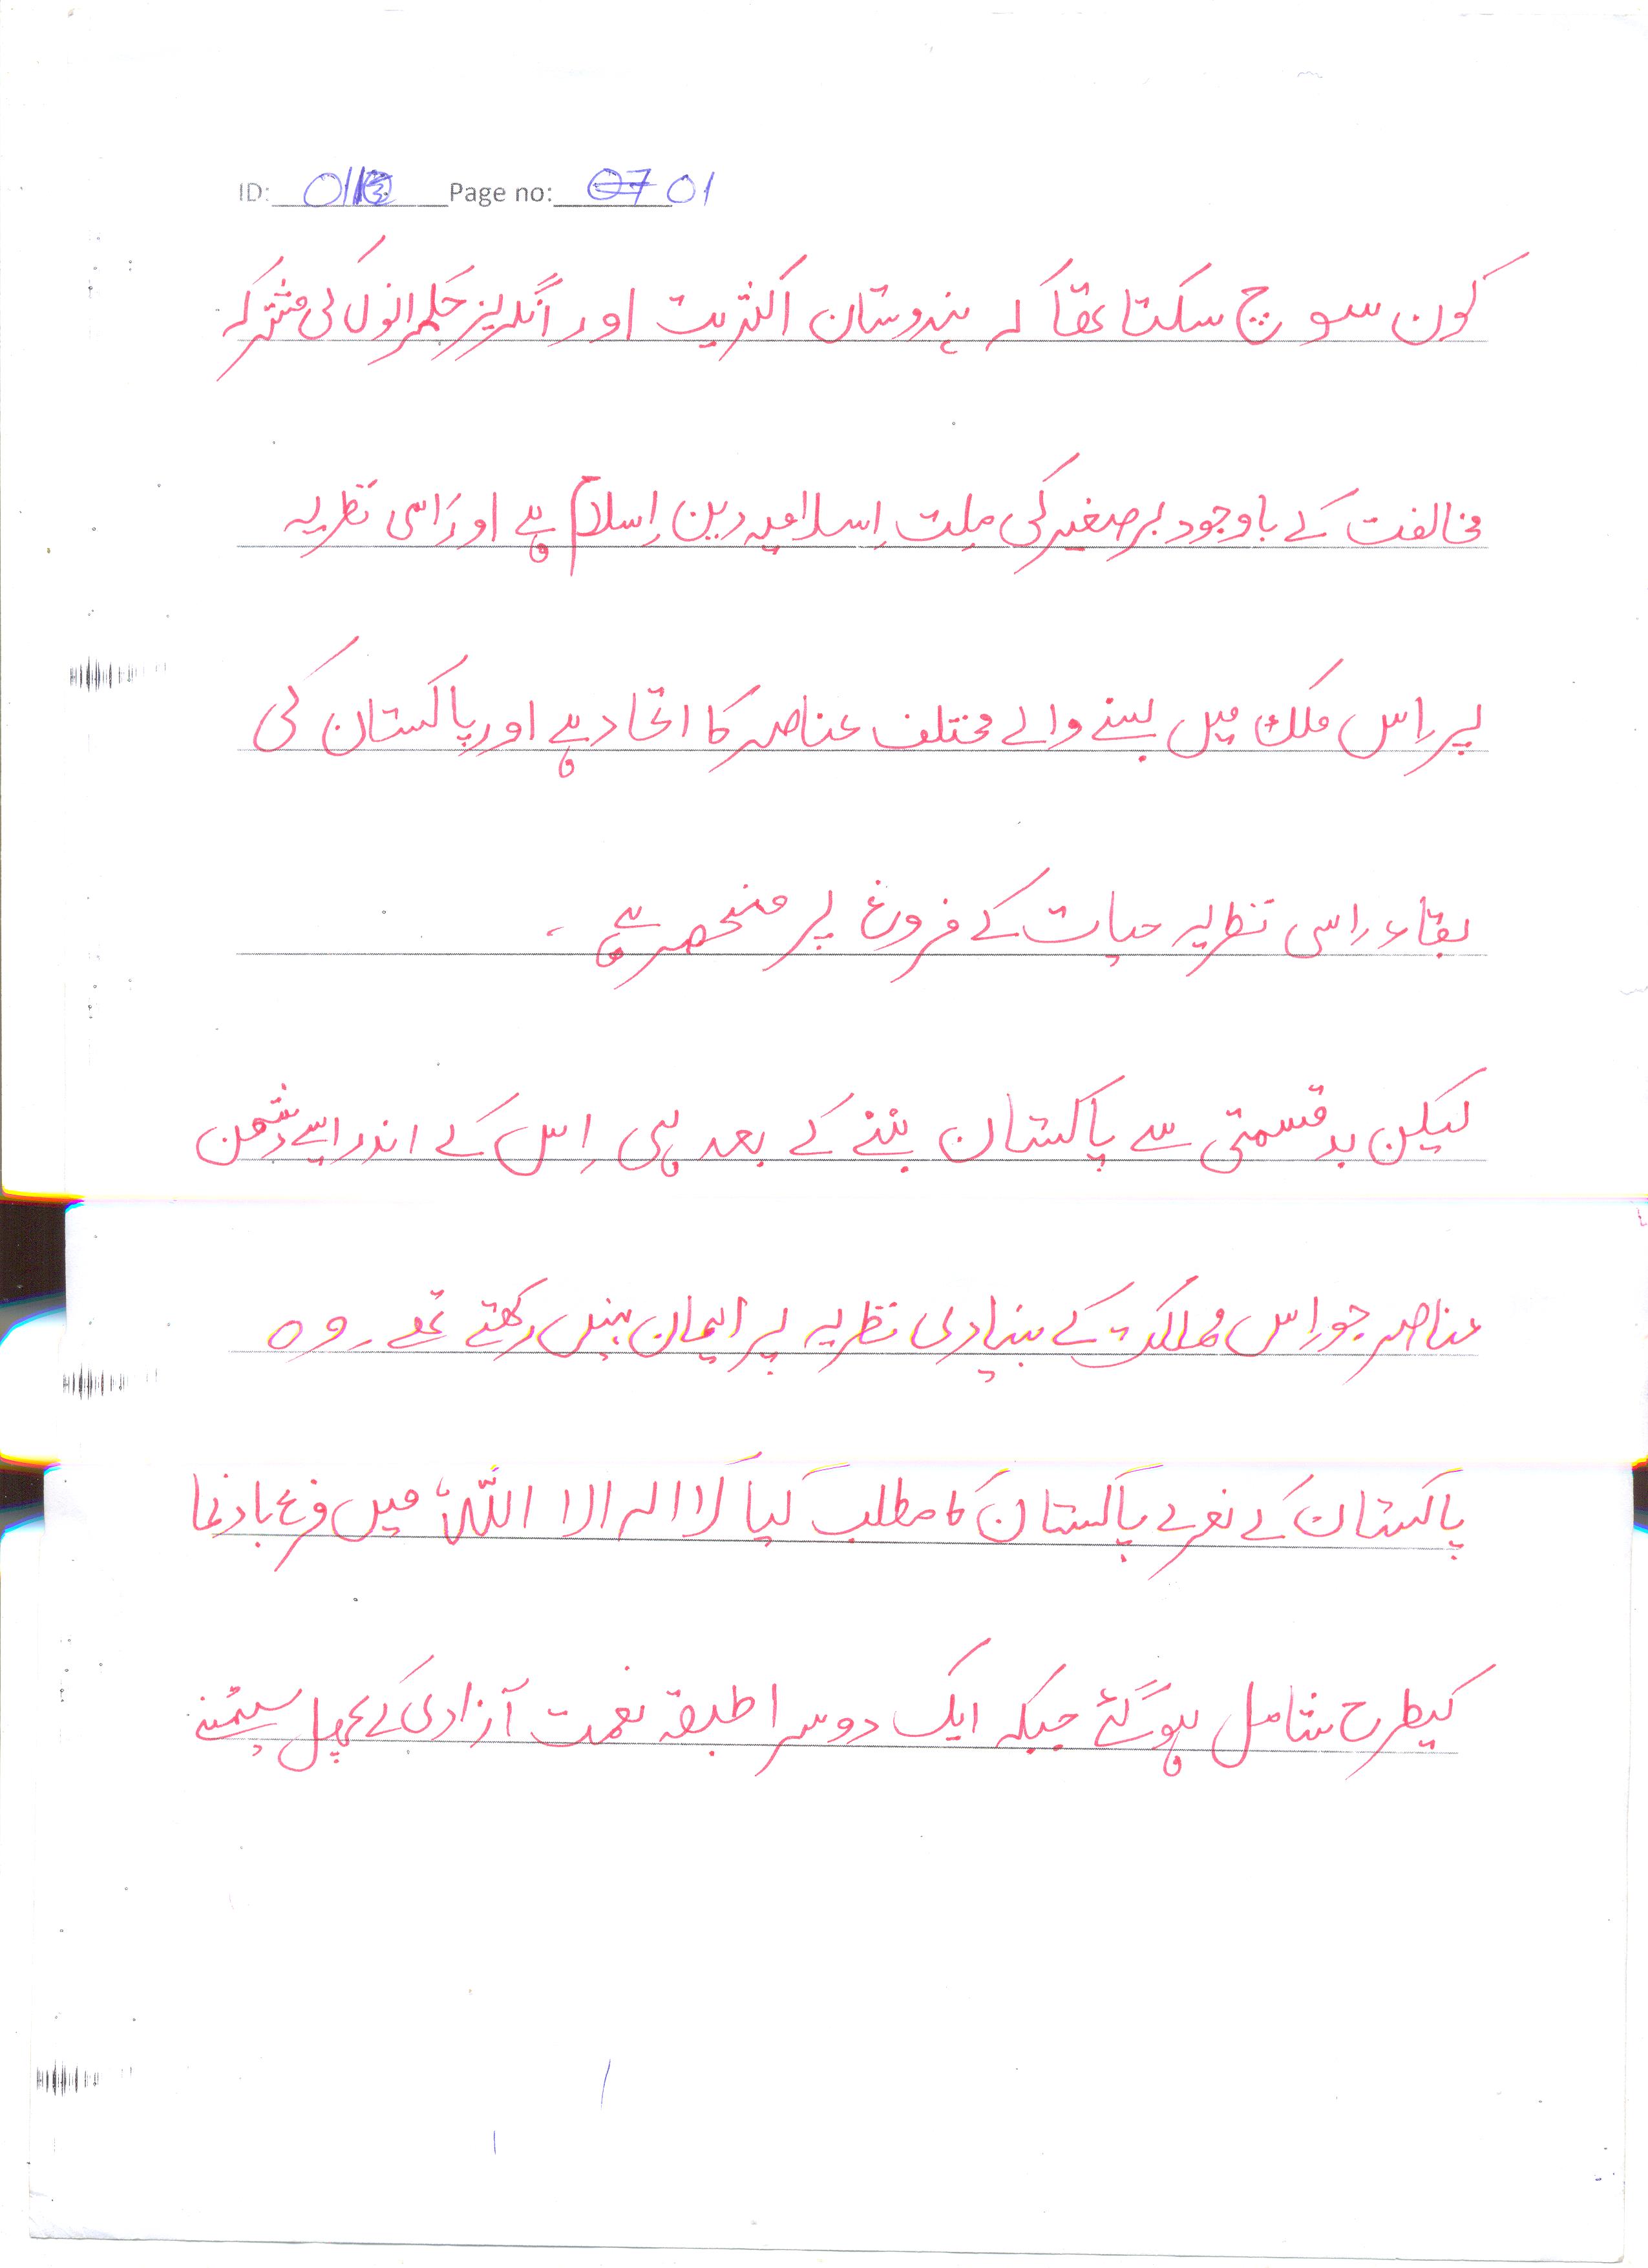 ID: 0113 Page no: 07 01
کون سوچ سکتا تھا کہ ہندوستان اکثریت اور انگریز حکمرانوں کی مشترکہ
مخالفت کے باوجود برصغیر کی مِلت اِسلامیہ دین اِسلام ہے اور اسی نظریہ
پر اِس ملک میں بسنے والے مختلف عناصر کا اتحاد ہے اور پاکستان کی
بقاء اسی نظریہ حیات کے فروغ پر منحصر ہے ۔
لیکن بدقسمتی سے پاکستان بننے کے بعد ہی اِس کے اندر ایسے دشمن
عناصر جو اِس مملکت کے بنیادی نظریہ پر ایمان نہیں رکھتے تھے ۔ وہ
پاکستان کے نعرے پاکستان کا مطلب کیا لا الہ الا اللہ" میں بادنما
کیطرح شامل ہوگئے جبکہ ایک دوسرا طبقہ نعمت آزادی کے پھل سمیٹنے